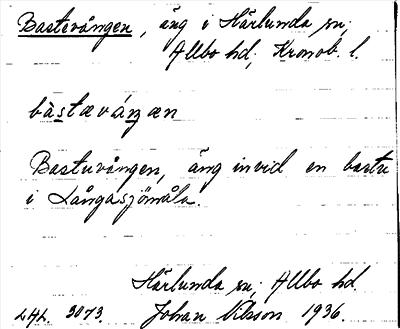 Bastevången, äng i Härlunda sn;
Allbo hd; Kronob. l.
bàstæváŋæn
Bastuvången, äng invid en bastu
i Långasjömåla.
Härlunda sn; Allbo hd.
LAL. 3073. Johan Nilsson 1936.